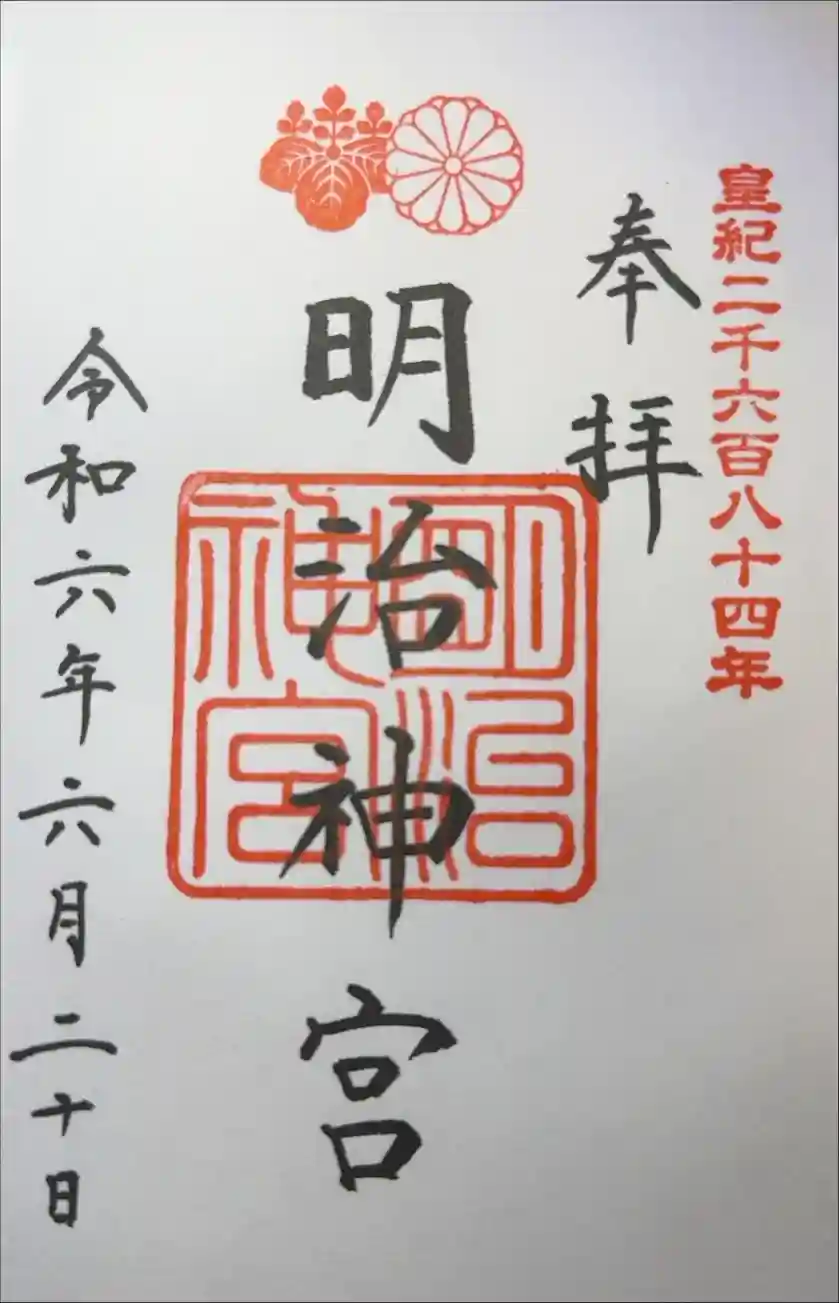 皇紀二千六百八十四年
奉拝
明治神宮
明治神宮
令和六年六月二十日